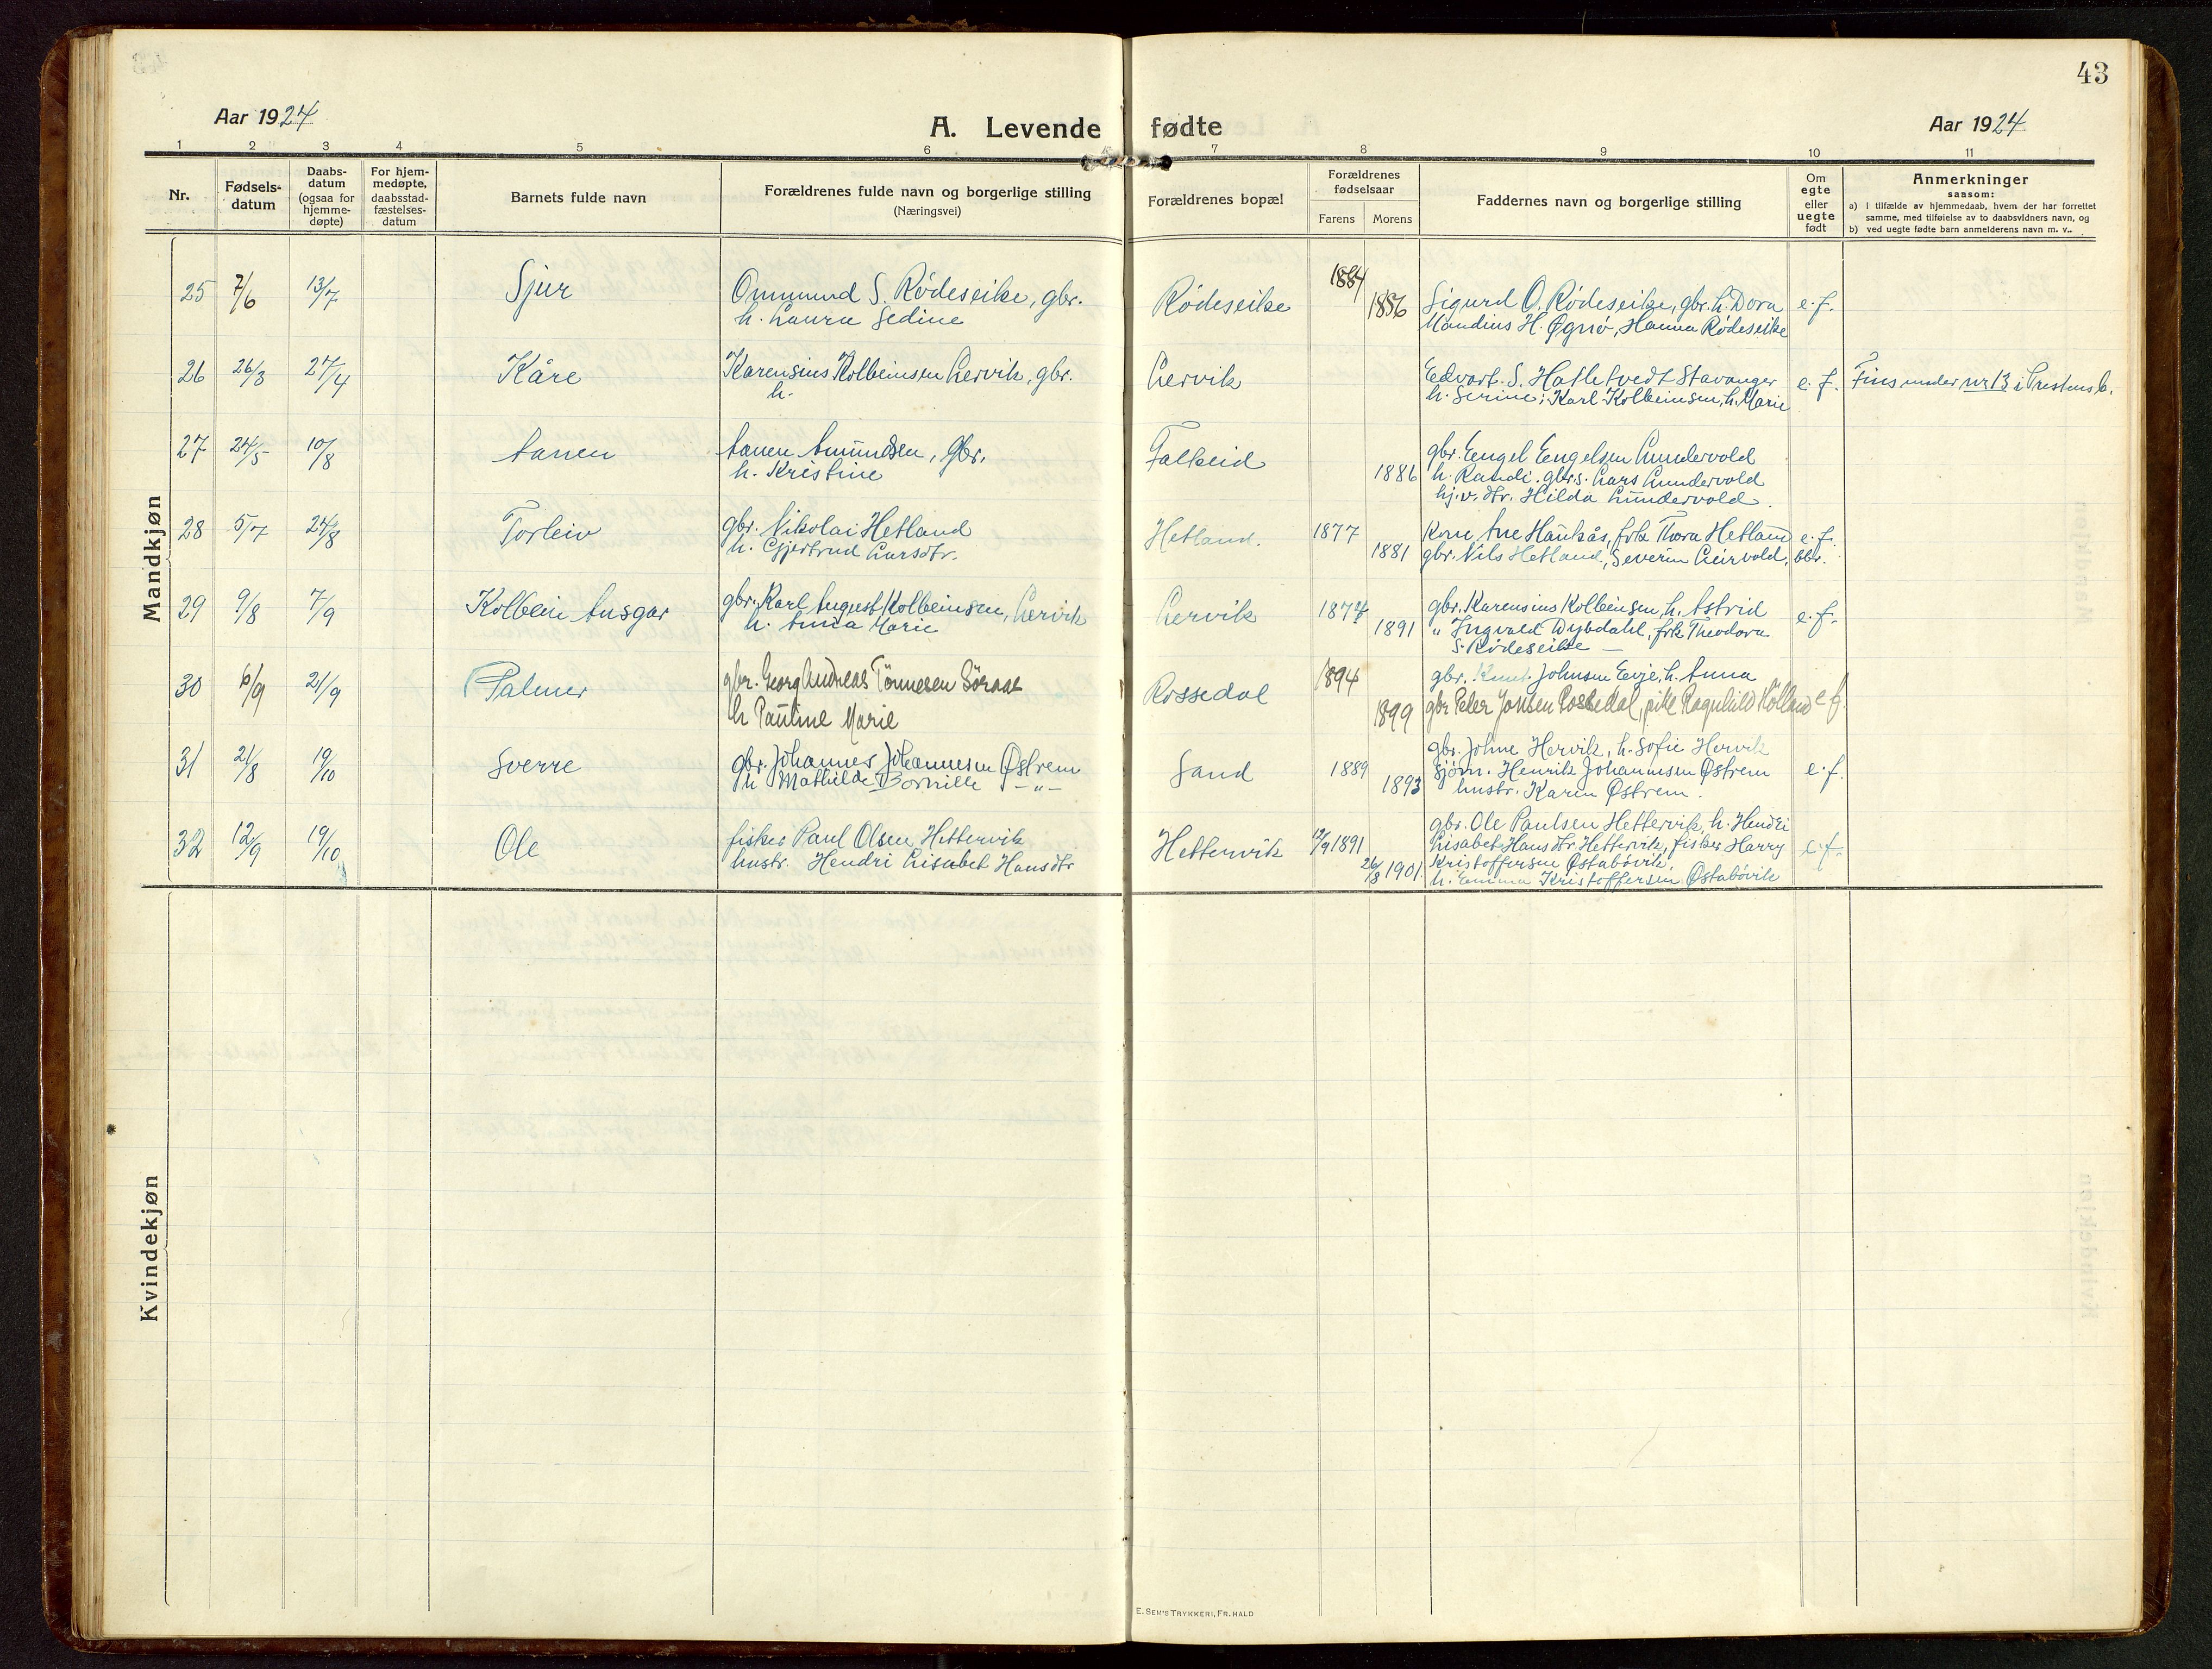 43
Aar 1924
A. Levende fødte
Aar 1924
1 2 3 4 5 6 7 8 9 10 11
Nr.
Fødsels-
datum
Daabs-
datum
(ogsaa for
hjemme-
døpte)
For hjem-
medøpte,
daabsstad-
fæstelses-
datum
Barnets fulde navn
Forældrenes fulde navn og borgerlige stilling
(Næringsvei)
Forældrenes bopæl
Forældrenes
fødselsaar
Farens Morens
Faddernes navn og borgerlige stilling
Om
egte
eller
uegte
født
Anmerkninger
saasom:
a) i tilfælde av hjemmedaab, hvem der har forrettet
samme, med tilføielse av to daabsvidners navn, og
b) ved uegte fødte barn anmelderens navn m. v..
Mandkjøn
25 7/6 13/7 Sjur
Ommund S. Rödeseike, gbr.
h. Laura Sedine
Rödeseike 1884
1886
Sigurd O. Rödeseike, gbr. h. Dora
Mandius H. Øgnø, Hanna Rödeseike
e. f.
26 26/3 27/4 Kåre
Karensius Kolbeinsen Lervik, gbr.
h.
Lervik
Edvart. S. Hatletvedt Stavanger
h. Serine; Karl Kolbeinsen, h. Marie
e. f. Fins under nr 13 i Prestens b.
27 24/5 10/8 Aanen
Aanen Amundsen, gbr.
h. Kristine
Falkeid
1886
gbr. Engel Engelsen Lundervold
h. Randi. gbrs. Lars Lundervold
hj.v. dtr. Hilda Lundervold.
28 5/7 24/8 Torleiv
gbr. Nikolai Hetland
h. Gjertrud Larsdtr.
Hetland. 1877
1881
Kone Ane Haukås, frk Thora Hetland
gbr. Nils Hetland, Severin Leirvold, bbr.
e. f.
29 9/8 7/9 Kolbein Ansgar
gbr. Karl August Kolbeinsen, Lervik
h. Anna Marie
Lervik 1874
1891
gbr. Karensius Kolbeinsen, h. Astrid
" Ingvald Dybdahl, frk Theodora
S. Rödeseike —
e. f.
30 6/9 21/9 Palmer
gbr. Georg Andreas Tönnesen Söraas
h Pauline Marie
Rossedal 1894
1899
gbr. Knut Johnsen Eeje, h. Anna
gbr Peter Jonsen Rossedal, pike Ragnhild Kölland
e f.
31 21/8 19/10 Sverre
gbr. Johannes Johannesen Østrem
h Mathilde Bornille — " —
Sand 1889
1893
gbr. Johne Hervik, h. Sofie Hervik
Sjöm. Henrik Johannesen Østrem
hustr. Karen Østrem.
e. f.
32 12/9 19/10 Ole
fisker Paul Olsen Hettervik
hustr. Hendri Lisabet Hansdtr
Hettervik 12/9 1891
26/8 1901.
gbr. Ole Paulsen Hettervik, h. Hendri
Lisabet Hansdtr Hettervik, fisker Harry
Kristoffersen Østabövik,
h. Emma Kristoffersen Østabövik
e. f.
Kvindekjøn
E. SEM'S TRYKKERI, FR.HALD